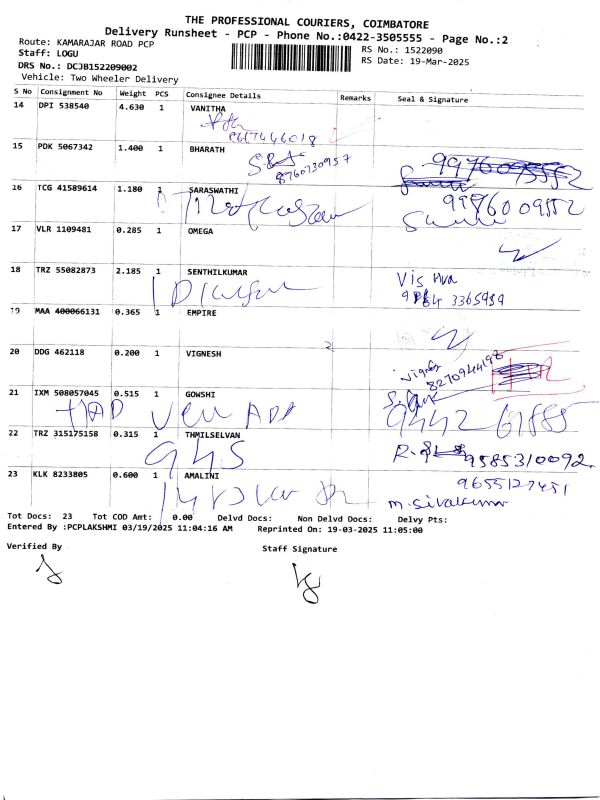 THE PROFESSIONAL COURIERS, COIMBATORE
Delivery Runsheet - PCP - Phone No.:0422-3505555 - Page No.:2
Route: KAMARAJAR ROAD PCP
Staff: LOGU
DRS No.: DCJB152209002
Vehicle: Two Wheeler Delivery
RS No.: 1522090
RS Date: 19-Mar-2025
S No Consignment No Weight PCS Consignee Details Remarks Seal & Signature
14 DPI 538540 4.630 1 VANITHA
15 PDK 5067342 1.400 1 BHARATH
8760730957
9976009552
16 TCG 41589614 1.180 1 SARASWATHI
9976009552
17 VLR 1109481 0.285 1 OMEGA
18 TRZ 55082873 2.185 1 SENTHILKUMAR
19 MAA 400066131 0.365 1 EMPIRE
20 DDG 462118 0.200 1 VIGNESH
8270944198
21 IXM 508057045 0.515 1 GOWSHI
9442 61885
22 TRZ 315175158 0.315 1 THMILSELVAN
9585310092
23 KLK 8233805 0.600 1 AMALINI
9655127451
m. sivakumar
Tot Docs: 23 Tot COD Amt: 0.00 Delvd Docs: Non Delvd Docs: Delvy Pts:
Entered By :PCPLAKSHMI 03/19/2025 11:04:16 AM Reprinted On: 19-03-2025 11:05:00
Verified By
Staff Signature